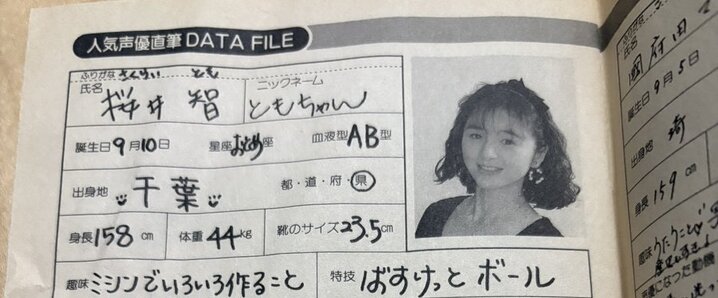 人気声優直筆 DATA FILE
ふりがな さくらい とも
氏名 桜井 智
ニックネーム ともちゃん
誕生日 9月10日 星座 おとめ座 血液型 AB型
出身地 千葉 都・道・府・県
身長 158cm 体重 44kg 靴のサイズ 23.5cm
趣味 ミシンでいろいろ作ること 特技 ばすけっと ボール
ふりがな
氏名 國府田
誕生日 9月5日
出身地 埼
身長 159
趣味
声優になった動機